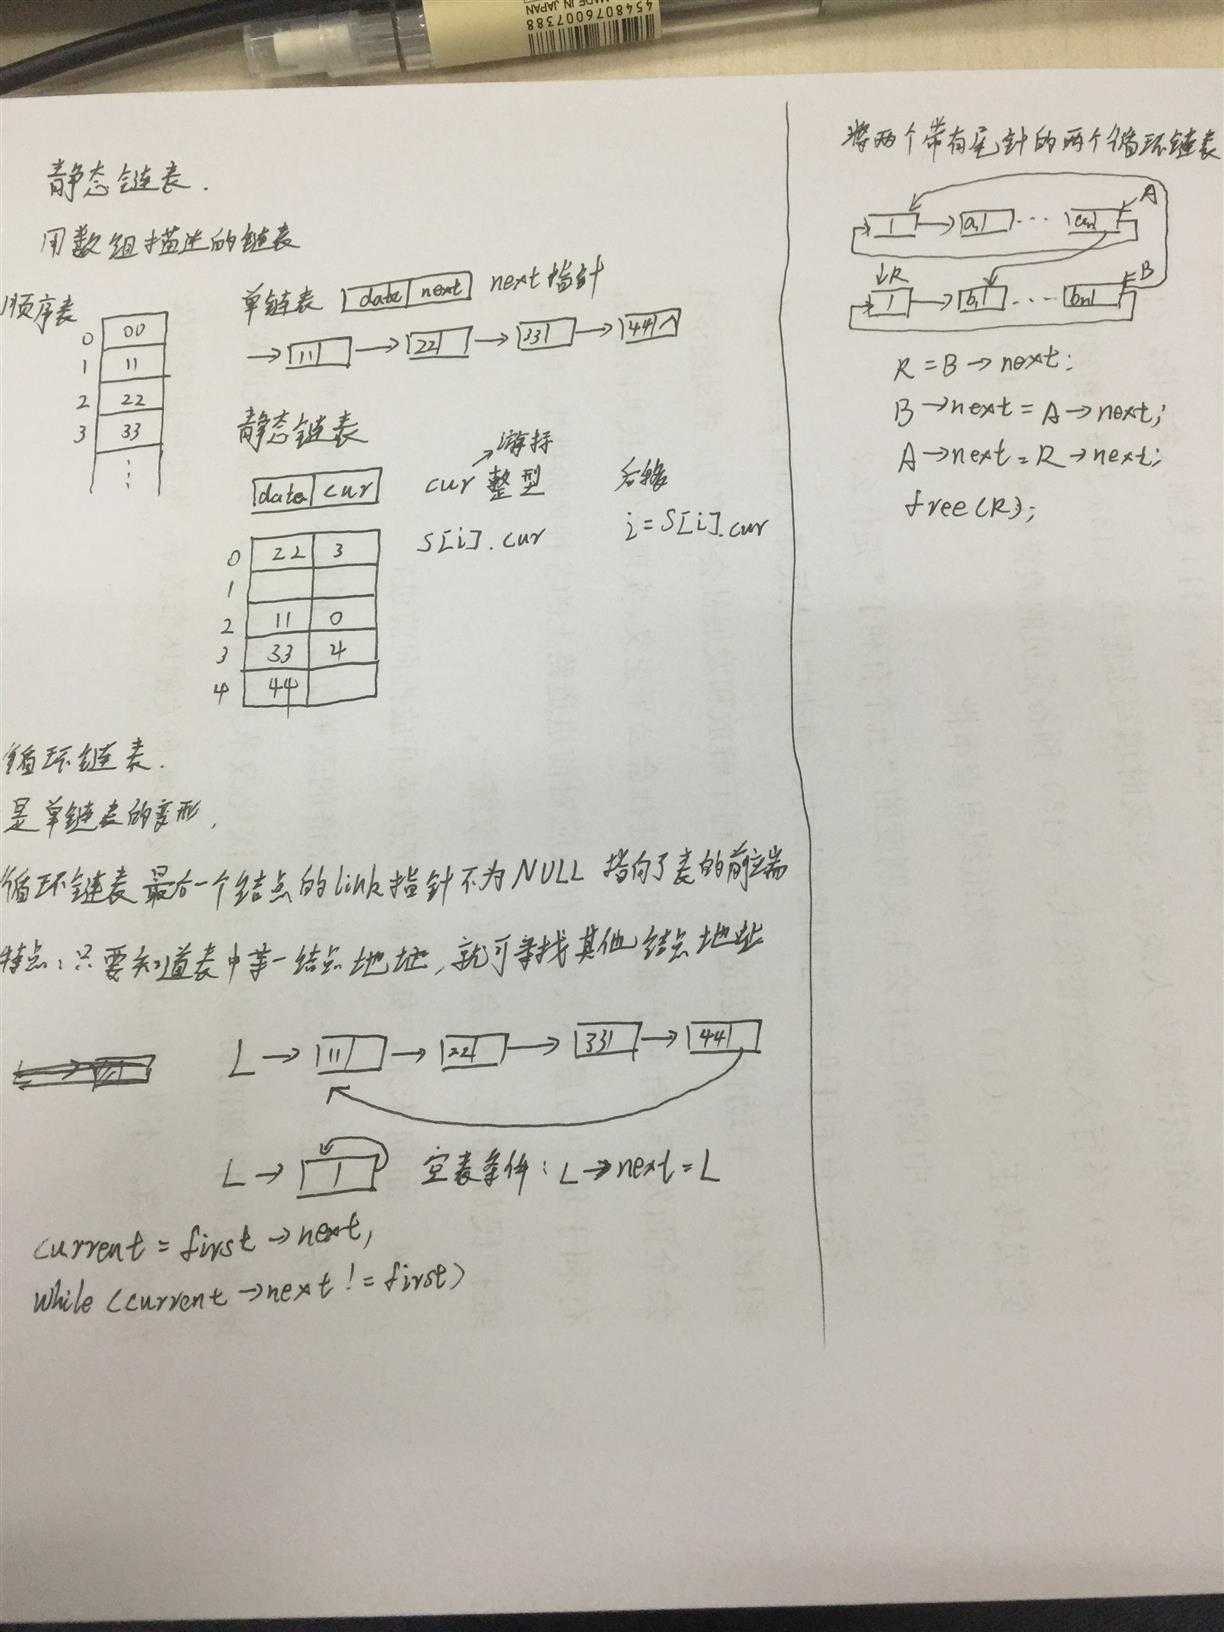 4548076007388
MADE IN JAPAN
静态链表.
用数组描述的链表
顺序表
0 00
1 11
2 22
3 33
⋮
单链表 data next next指针
11 22 33 44 ∧
静态链表
data cur
游标
cur 整型
S[i].cur
后移
i=S[i].cur
0 22 3
1
2 11 0
3 33 4
4 44
循环链表.
是单链表的变形,
循环链表最后一个结点的link指针不为NULL 指向了表的前端
特点:只要知道表中某一结点地址,就可寻找其他结点地址
L → 11 → 22 → 33 → 44
L →
空表条件: L→next=L
current = first→next,
while (current→next != first)
将两个带有尾针的两个循环链表
a1 ··· an A
R
b1 ··· bn B
R = B→next;
B→next = A→next;
A→next = R→next;
free(R);